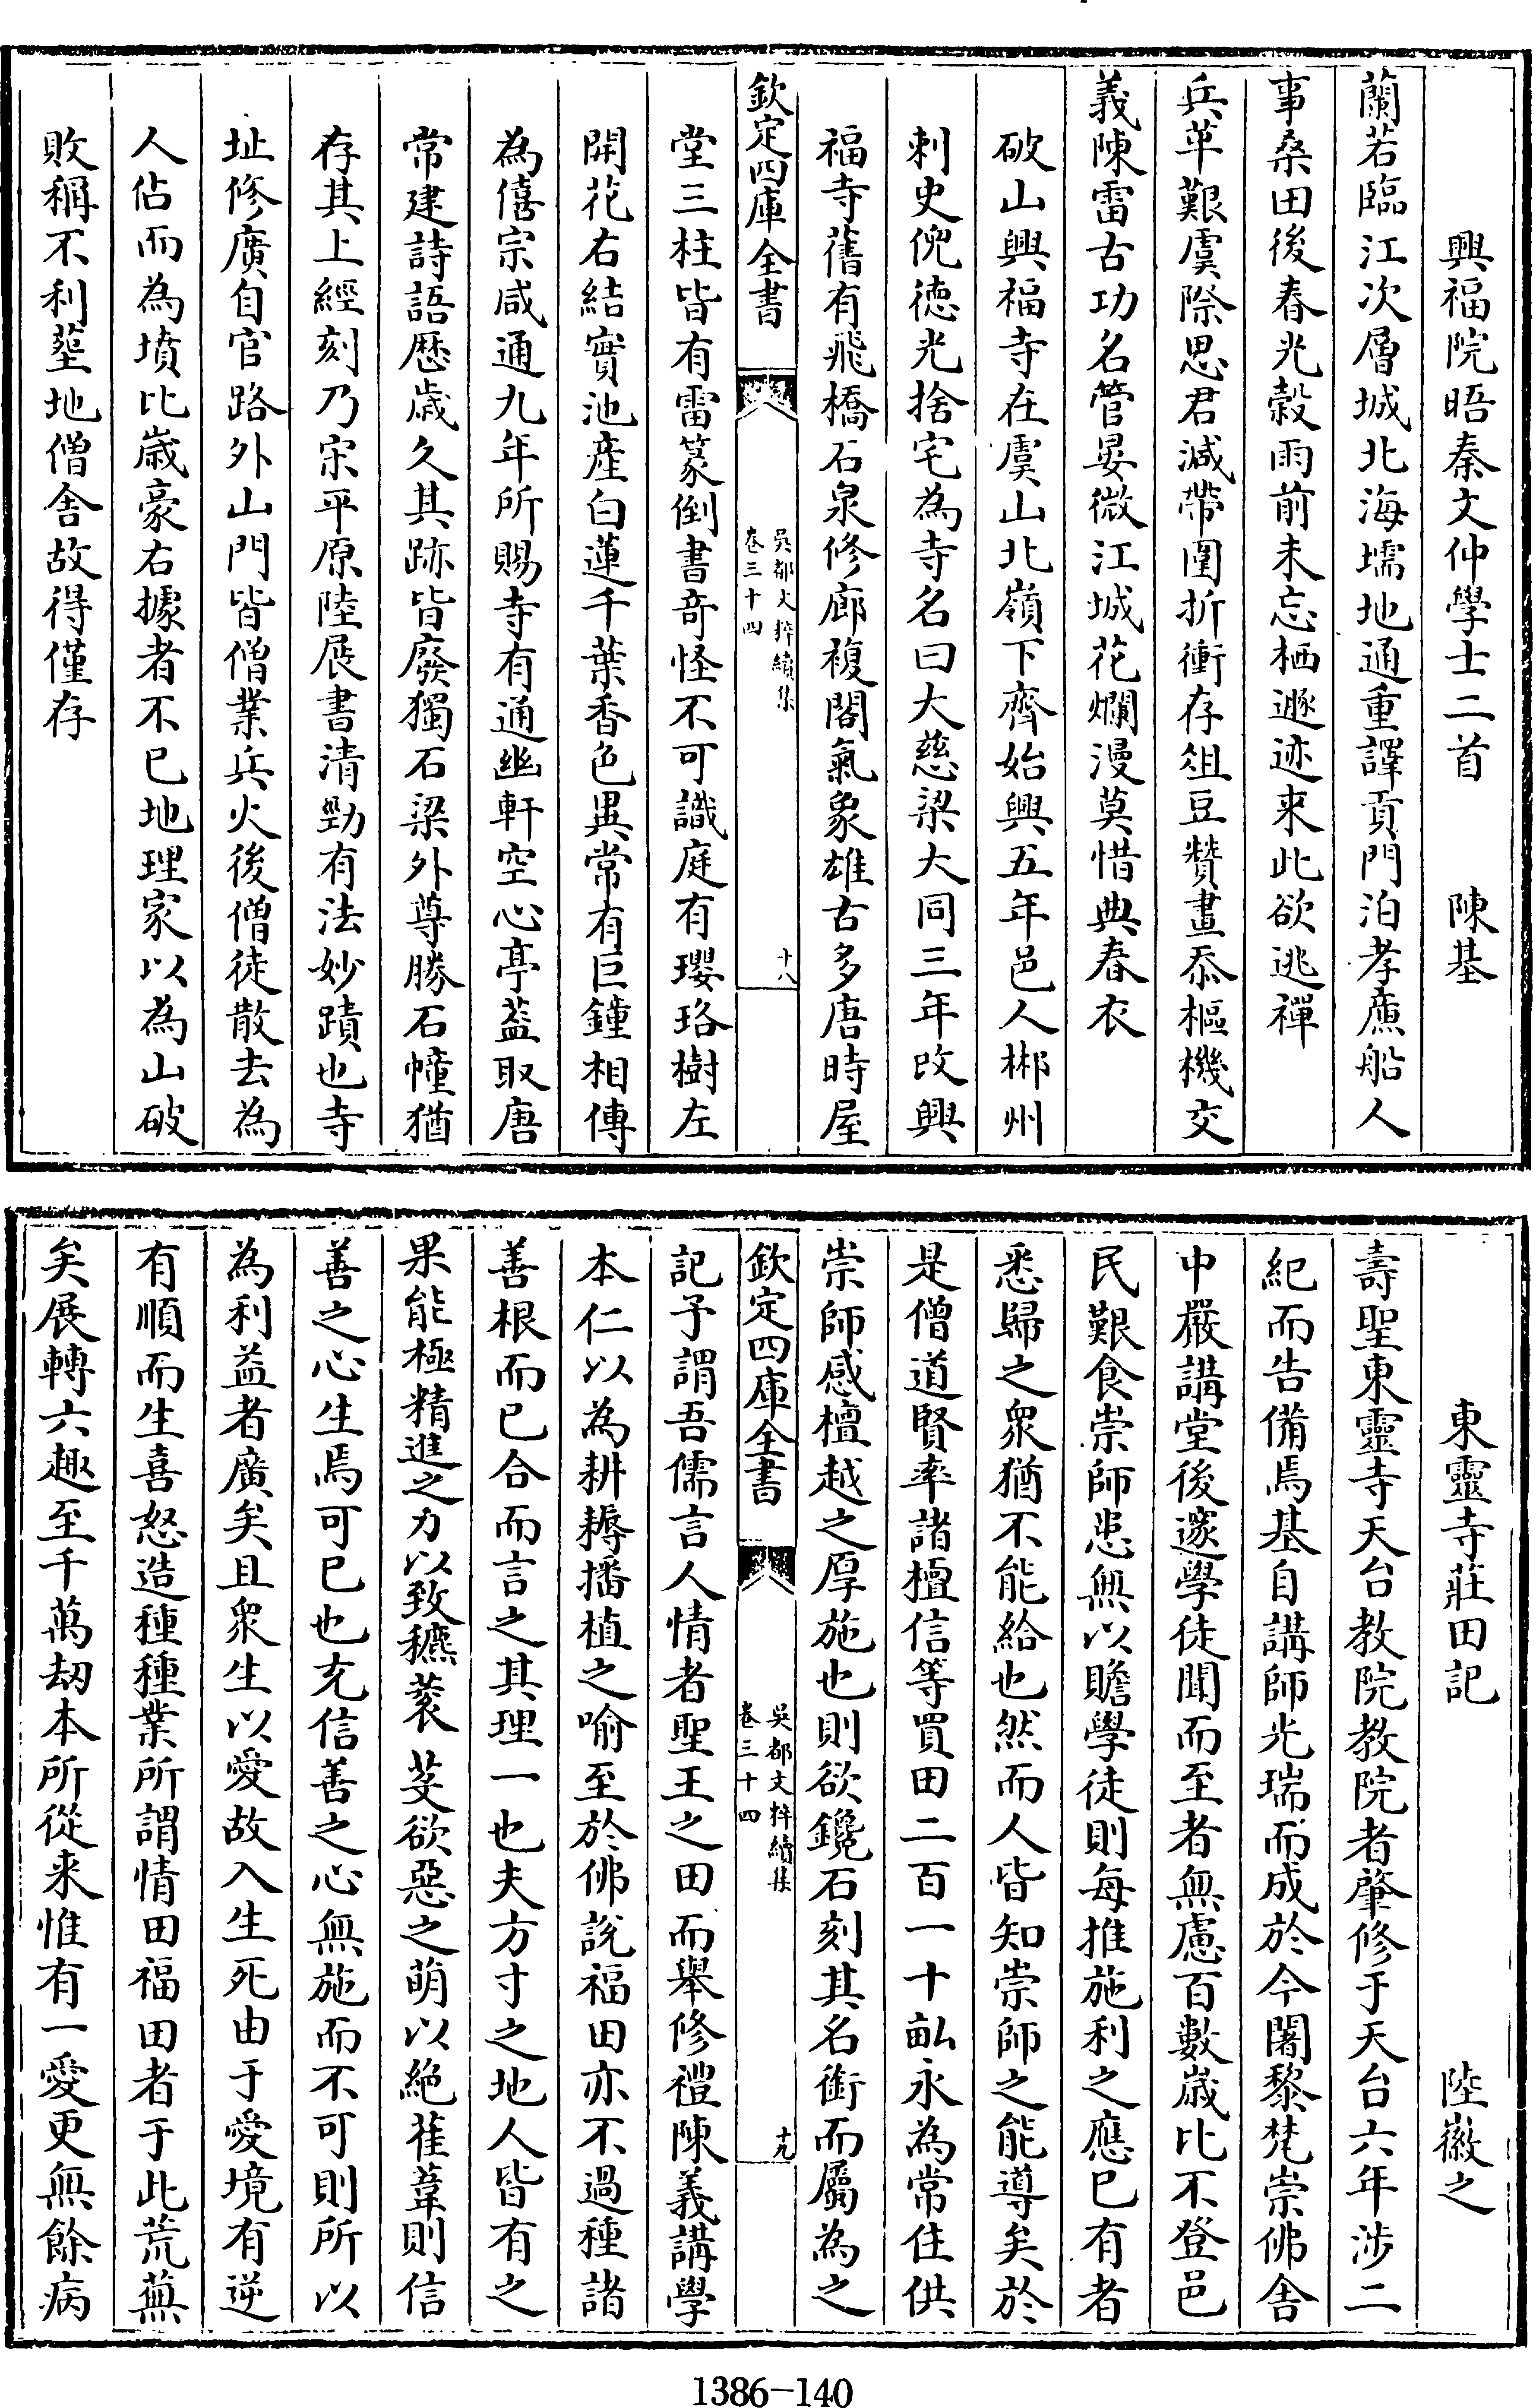 興福院晤秦文仲學士二首　陳基
蘭若臨江次層城北海壖地通重譯貢門泊孝廉船人
事桑田後春光榖雨前未忘栖遯迹来此欲逃禪
兵革艱虞際思君減帶圍折衝存俎豆贊畫忝樞機交
義陳雷古功名管晏微江城花爛漫莫惜典春衣
破山興福寺在虞山北嶺下齊始興五年邑人郴州
刺史倪徳光捨宅為寺名曰大慈梁大同三年改興
福寺舊有飛橋石泉修廊複閣氣象雄古多唐時屋
欽定四庫全書
吳都文粹續集
卷三十四
十八
堂三柱皆有雷篆倒書竒怪不可識庭有瓔珞樹左
開花右結實池產白蓮千葉香色異常有巨鐘相傳
為僖宗咸通九年所賜寺有通幽軒空心亭葢取唐
常建詩語歴歳久其跡皆廢獨石梁外尊勝石幢猶
存其上經刻乃宋平原陸展書清勁有法妙蹟也寺
址修廣自官路外山門皆僧業兵火後僧徒散去為
人佔而為墳比歳豪右據者不已地理家以為山破
敗稱不利塟地僧舍故得僅存
東靈寺莊田記　陸徽之
壽聖東靈寺天台教院教院者肇修于天台六年涉二
紀而告備焉基自講師光瑞而成於今闍黎梵崇佛舍
中嚴講堂後邃學徒聞而至者無慮百數歳比不登邑
民艱食崇師患無以贍學徒則每推施利之應已有者
悉歸之衆猶不能給也然而人皆知崇師之能導矣於
是僧道賢率諸檀信等買田二百一十畝永為常住供
崇師感檀越之厚施也則欲鑱石刻其名銜而屬為之
欽定四庫全書
吳都文粹續集
卷三十四
十九
記予謂吾儒言人情者聖王之田而舉修禮陳義講學
本仁以為耕耨播植之喻至於佛說福田亦不過種諸
善根而已合而言之其理一也夫方寸之地人皆有之
果能極精進之力以致穮蓘芟欲惡之萌以絶萑葦則信
善之心生焉可已也充信善之心無施而不可則所以
為利益者廣矣且衆生以愛故入生死由于愛境有逆
有順而生喜怒造種種業所謂情田福田者于此荒蕪
矣展轉六趣至千萬刼本所從来惟有一愛更無餘病
1386-140